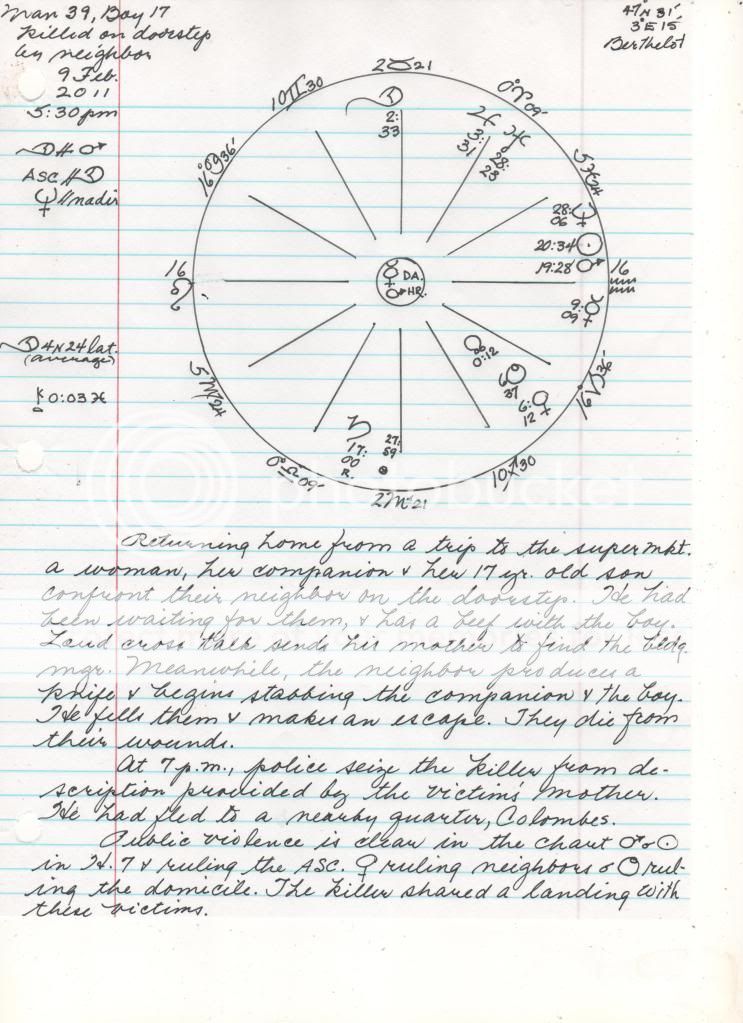 Man 39, Boy 17
killed on doorstep
by neighbor
9 Feb.
2011
5:30pm
47 N 31'
3°E 15'
Berthelot
☽ # ♂
ASC // ☽
☿ // nadir
☽ 4 N 24 lat.
(average)
⚷ 0:03 ♓
2 ♉ 21
0° ♈ 09'
5 ♓ 24
16 ♒
16 ♑ 36'
10 ♐ 30
2 ♏ 21
0° ♎ 09'
5 ♍ 24
16 ♌
16° ♋ 36'
10 ♊ 30
☽
2:
33
♃
3:
31
28:
23
28:
06
☉
20:34
19:28 ♂
9:
09
0:12
6
37
♀
6:
12
♄
17:
00
R.
27:
59
DA.
♂ HR.
photobucket
Returning home from a trip to the supermkt.
a woman, her companion & her 17 yr. old son
confront their neighbor on the doorstep. He had
been waiting for them, & has a beef with the boy.
Loud cross talk sends his mother to find the bldg.
mgr. Meanwhile, the neighbor produces a
knife & begins stabbing the companion & the boy.
He fells them & makes an escape. They die from
their wounds.
At 7 p.m., police seize the killer from de-
scription provided by the victim's mother.
He had fled to a nearby quarter, Colombes.
Public violence is clear in the chart ♂ ☌ ☉
in H. 7 & ruling the ASC. ♀ ruling neighbors ☌ rul-
ing the domicile. The killer shared a landing with
these victims.